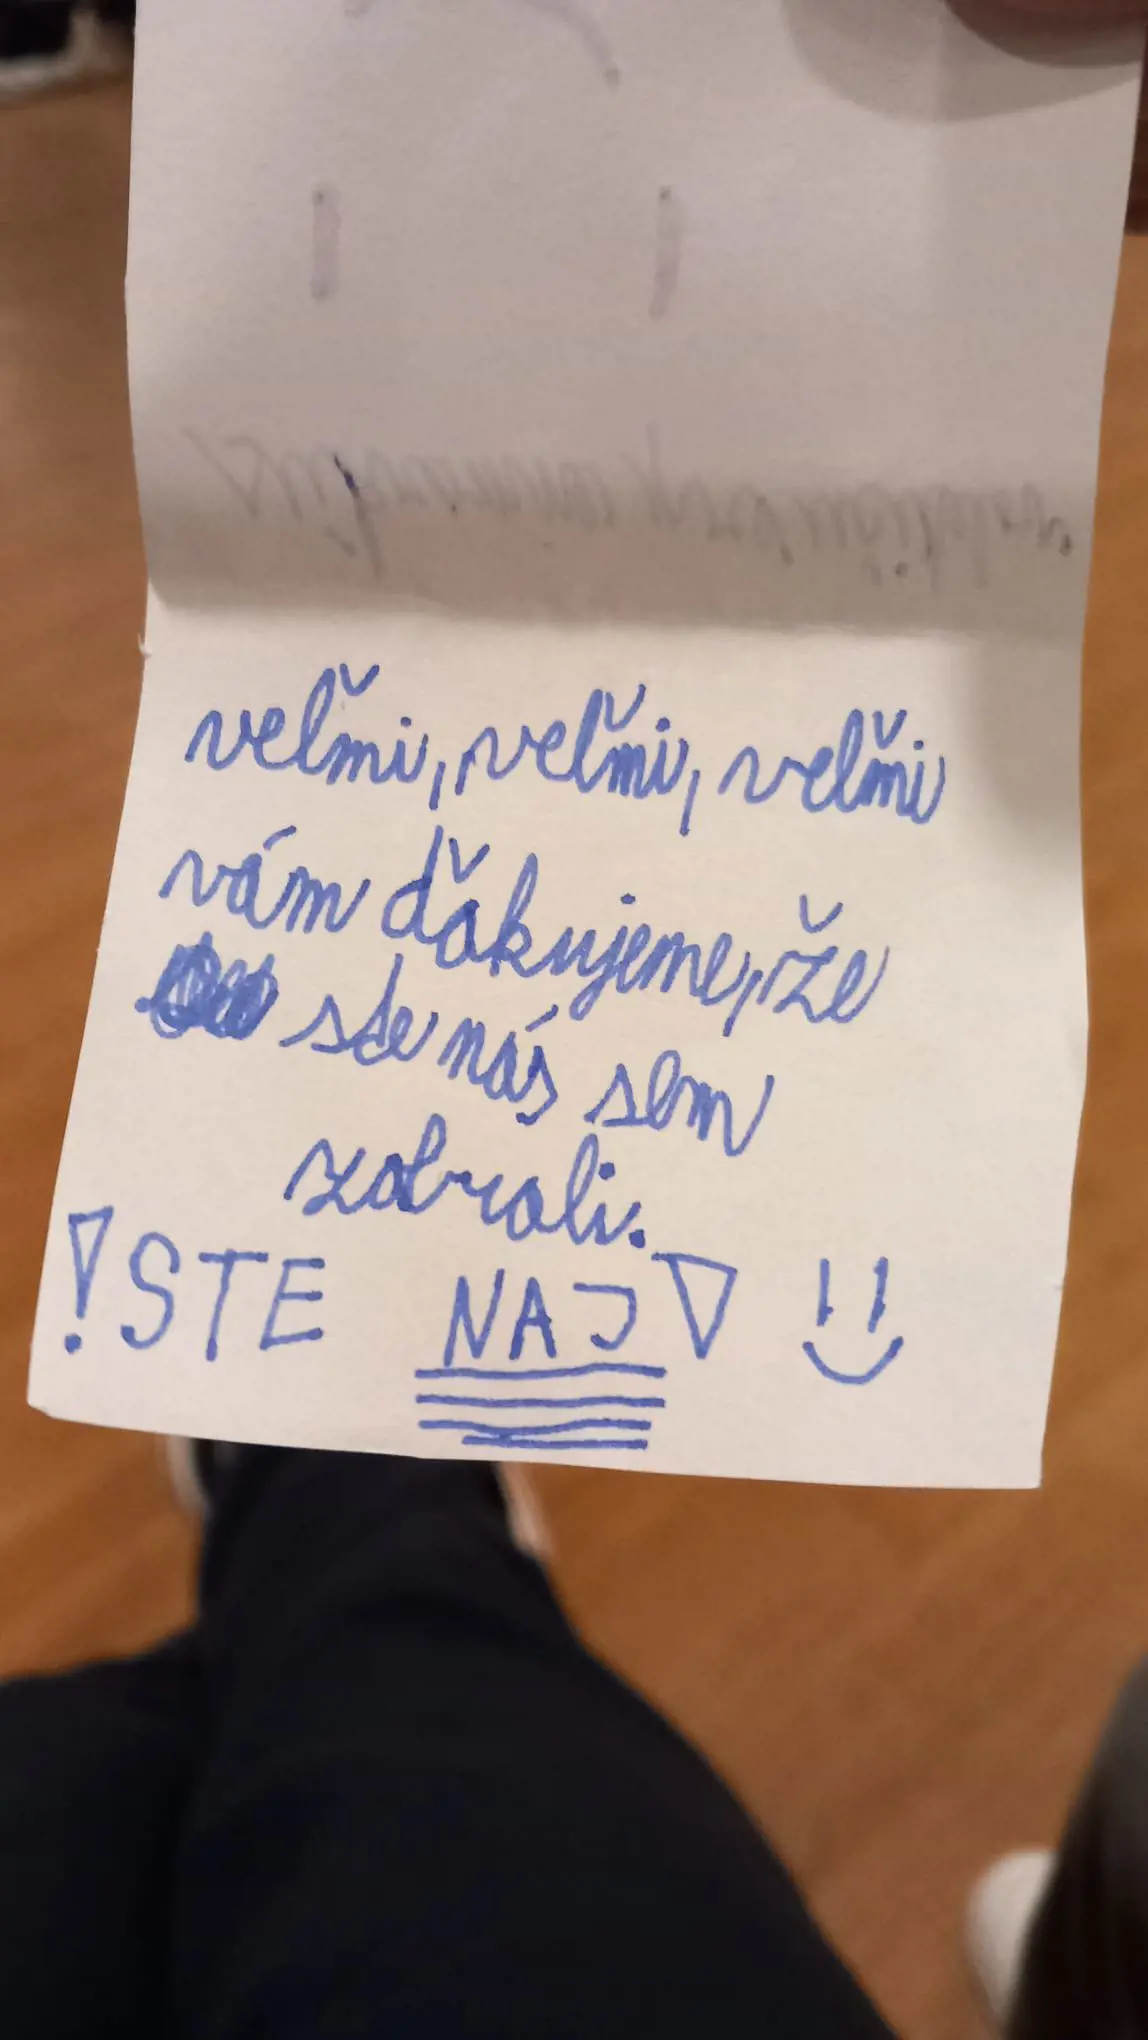 veľmi, veľmi, veľmi
vám ďakujeme, že
ste nás sem
zobrali.
!STE NAJ! :)